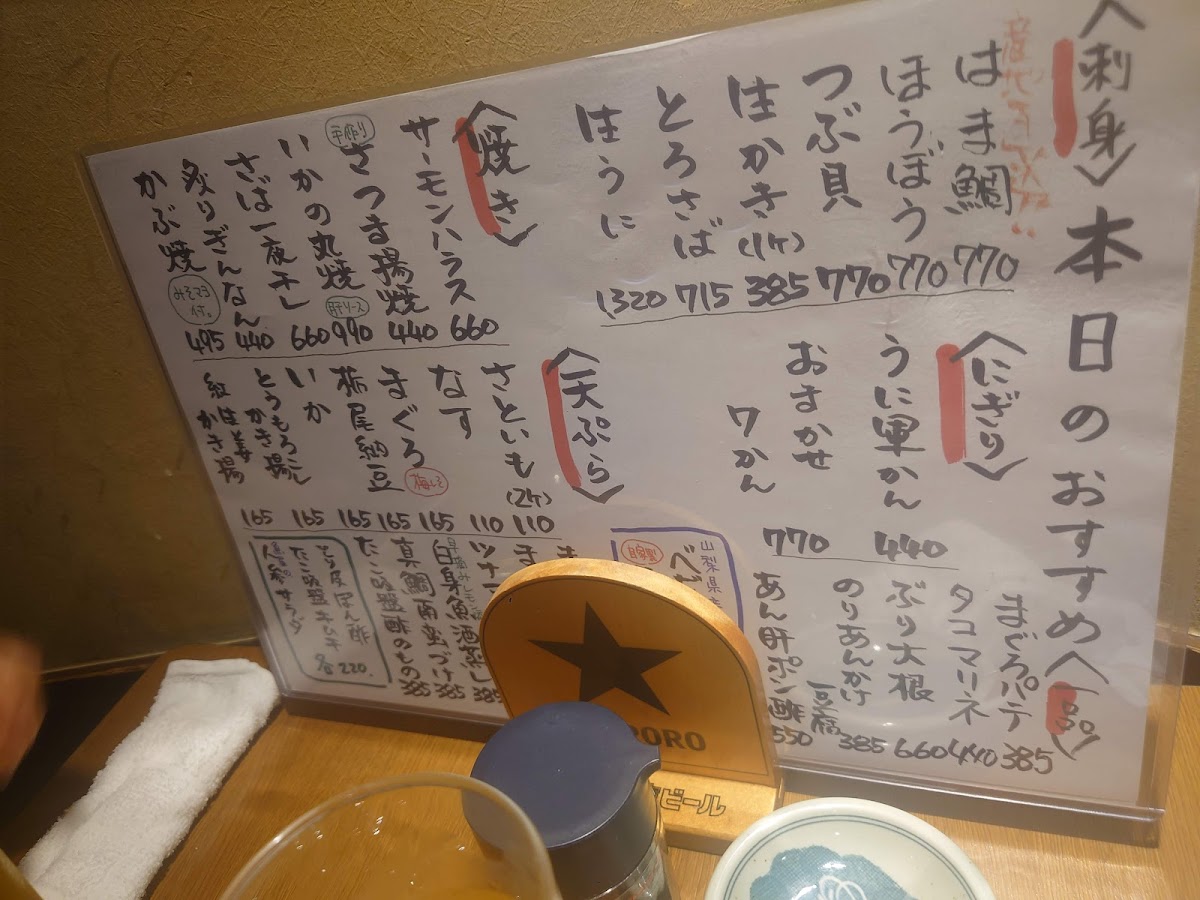 本日のおすすめ
〈刺身〉
はま鯛 770
ほうぼう 770
つぶ貝 770
生かき(1ケ) 385
とろさば 715
生うに 1,320
〈焼き〉
サーモンハラス 660
手作り さつま揚焼 440
いかの丸焼 肝ソース 990
さば一夜干し 660
炙りぎんなん 440
かぶ焼 みそマヨ付。 495
〈にぎり〉
うに軍かん 440
おまかせ 7かん 770
〈天ぷら〉
さといも(2ケ) 110
なす 110
まぐろ 梅しそ 165
栃尾納豆 165
いか 165
とうもろこしかき揚 165
紅生姜かき揚 165
〈一品〉
まぐろパテ 385
タコマリネ 440
ぶり大根 660
のりあんかけ豆腐 385
あん肝ポン酢 550
山梨県産
自家製
ツナ
白果魚酒蒸し 385
真鯛南蛮づけ 385
酢のもの 385
とり皮ぽん酢
たこ キムチ
人参サラダ
各220.
PORO
ビール